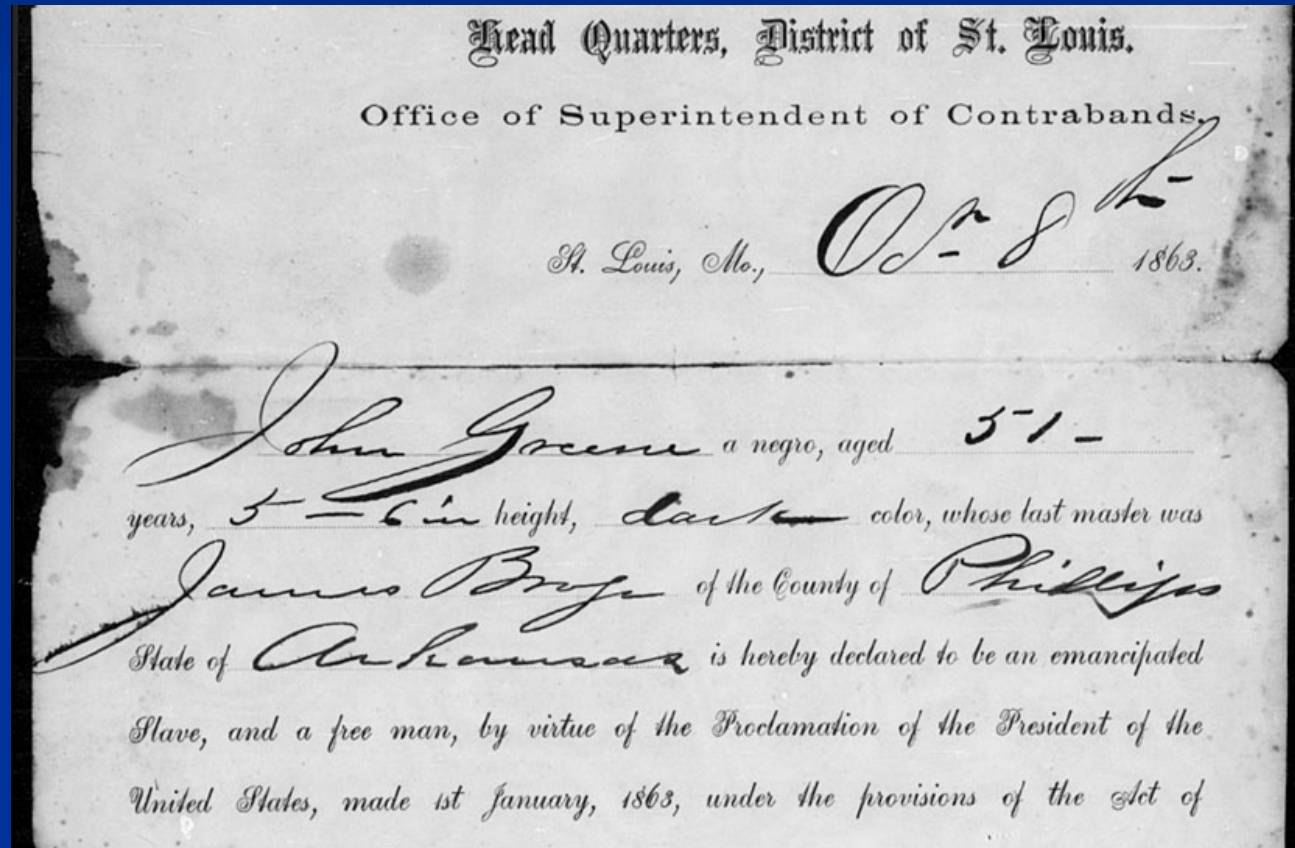 Head Quarters, District of St. Louis.
Office of Superintendent of Contrabands.
St. Louis, Mo., 8th 1863.
John Greene a negro, aged 51 –
years, 5 – 6 in height, dark color, whose last master was
James of the County of Phillips
State of Arkansas is hereby declared to be an emancipated
Slave, and a free man, by virtue of the Proclamation of the President of the
United States, made 1st January, 1863, under the provisions of the Act of